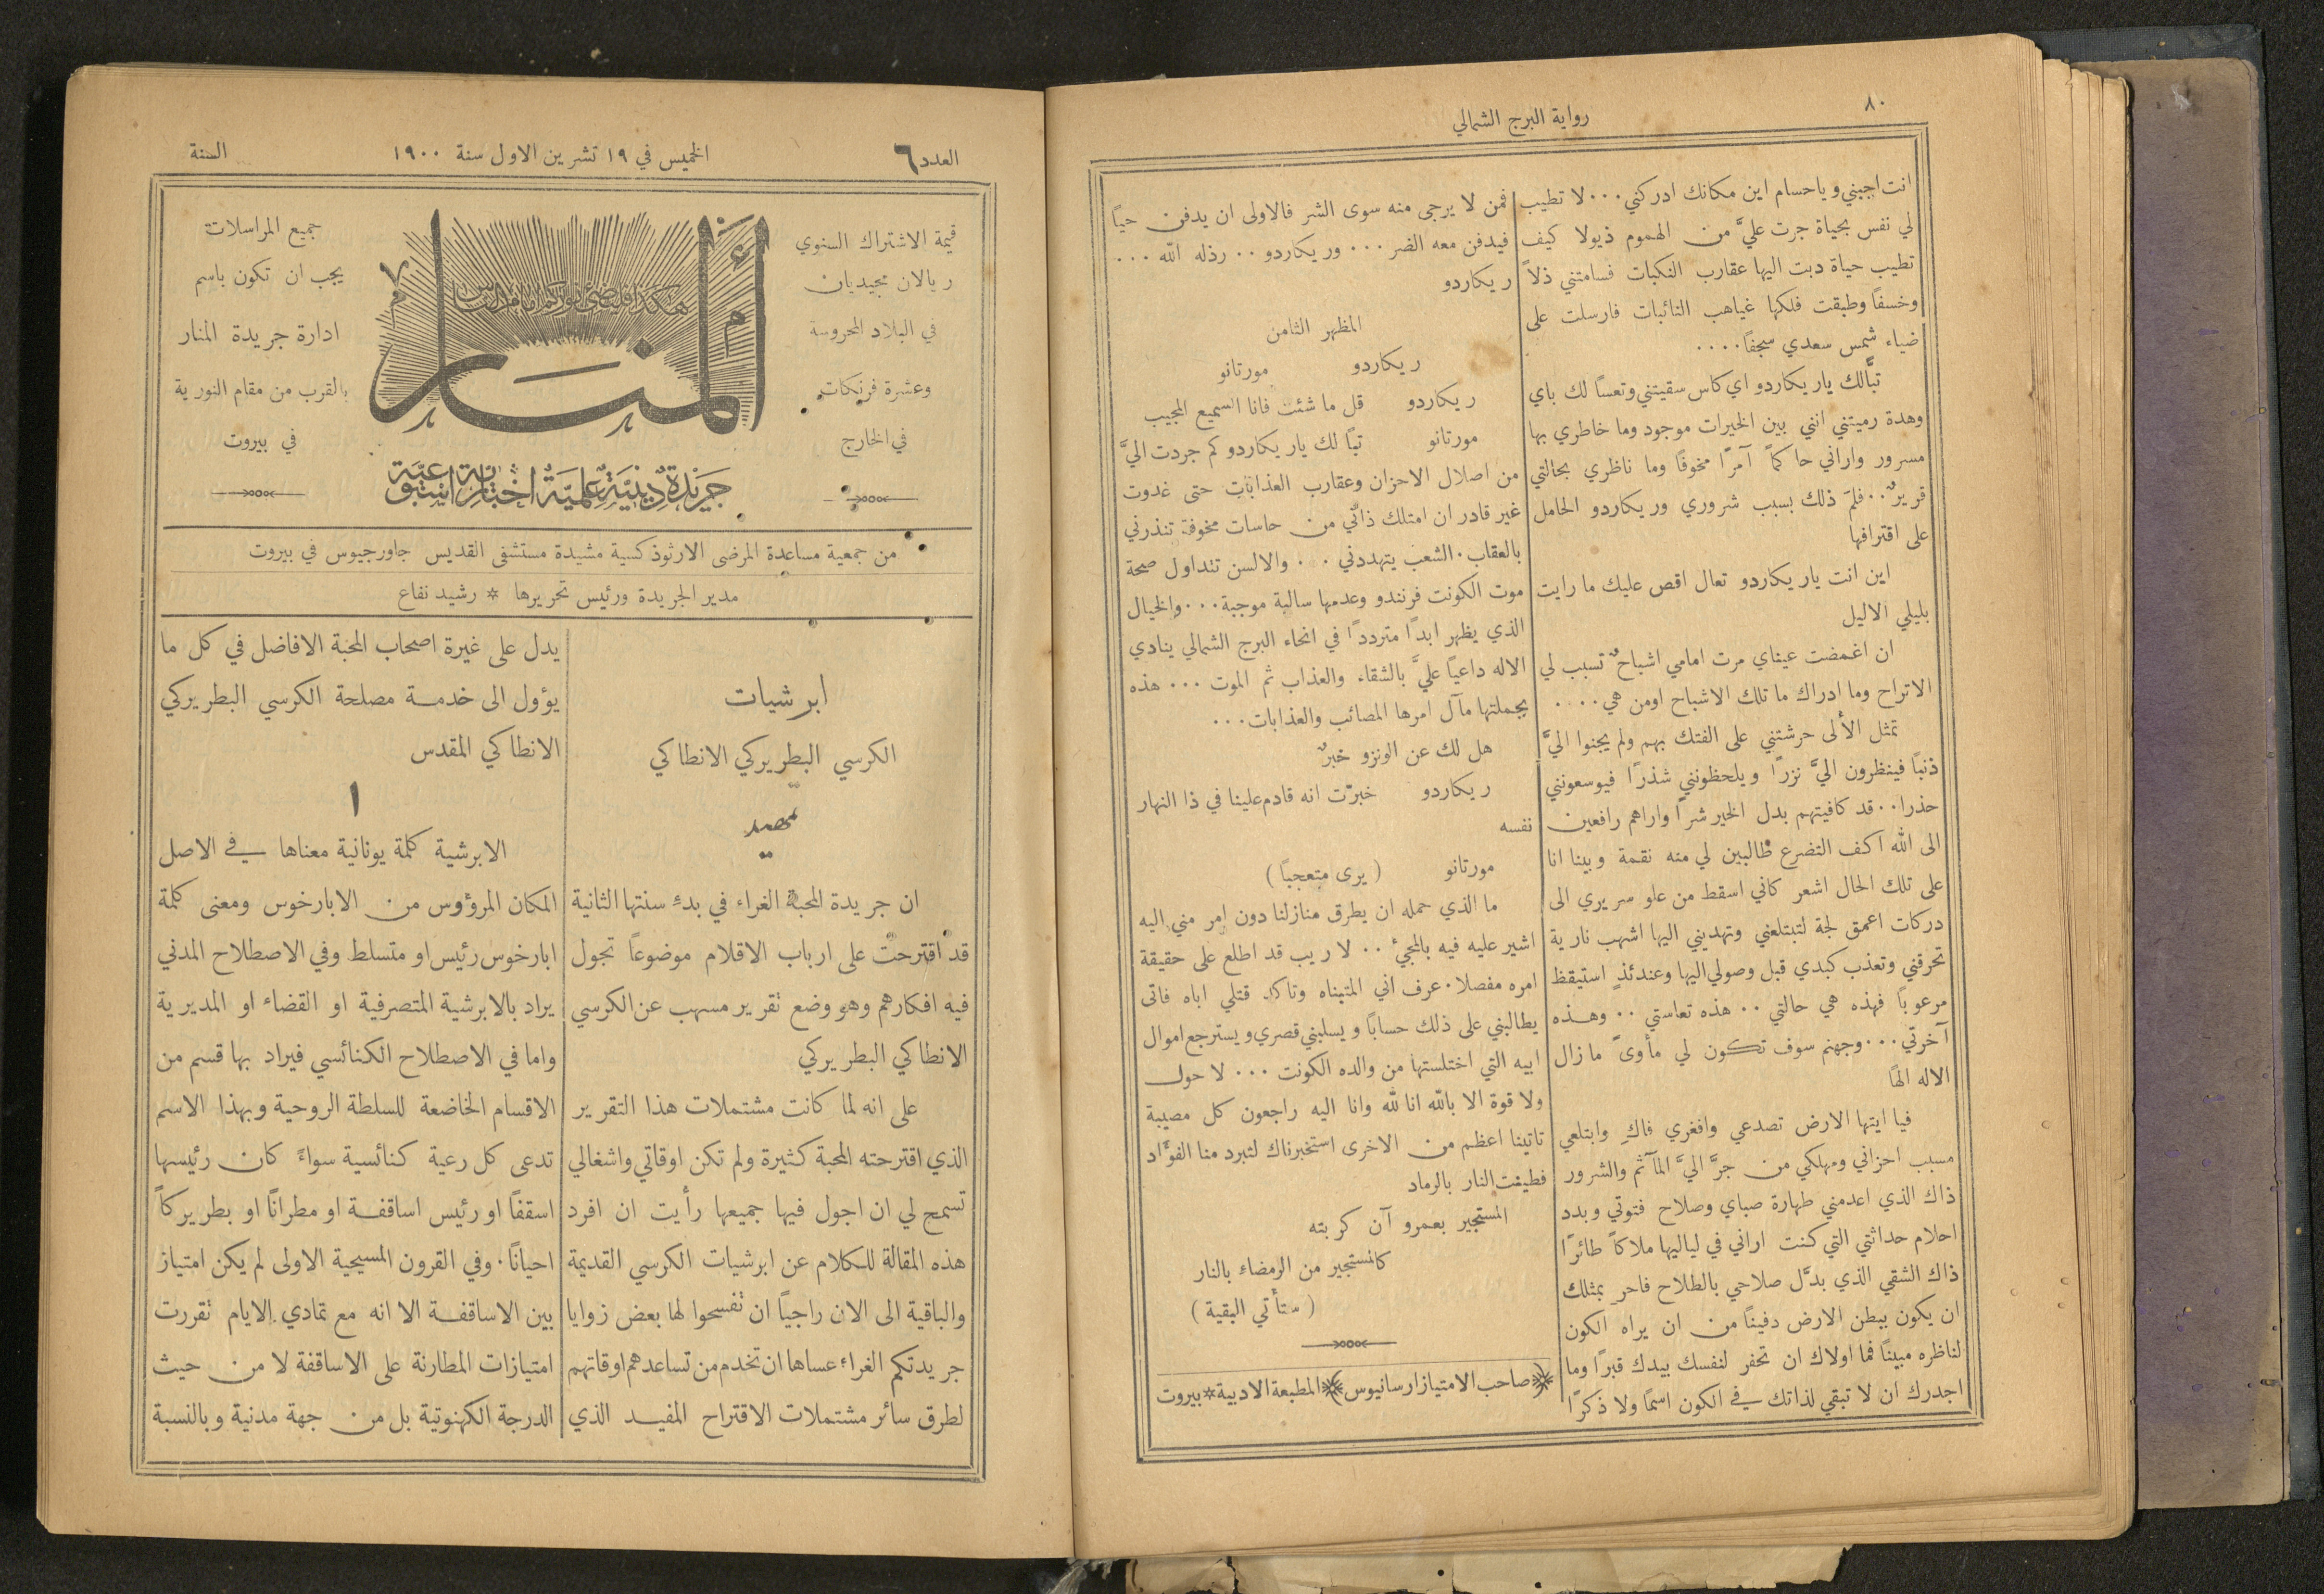 ٨٠
رواية البرج الشمالي
انت اجبني ويا حسام اين مكانك ادركني... لا تطيب
لي نفس بحياة جرت عليَّ من الهموم ذيولا كيف
تطيب حياة دبت اليها عقارب النكبات فسامتني ذلاً
وخسفاً وطبقت فلكها غياهب النائبات فارسلت على
ضياء شمس سعدي سجفاً....
تبًّا لك ياريكاردو اي كاس سقيتني وتعسًا لك باي
وهدة رميتني انني بين الخيرات موجود وما خاطري بها
مسرور واراني حاكمًا آمرًا مخوفًا وما ناظري بحالتي
قرير.. فلمَ ذلك بسبب شروري وريكاردو الحامل
على اقترافها
اين انت ياريكاردو تعال اقص عليك ما رايت
بليلي الاليل
ان اغمضت عيناي مرت امامي اشباحٌ تسبب لي
الاتراح وما ادراك ما تلك الاشباح اومن هي....
تمثل الألى حرشتني على الفتك بهم ولم يجنوا اليَّ
ذنبًا فينظرون اليَّ نزرًا ويلحظونني شذرًا فيوسعونني
حذرا.. قد كافيتهم بدل الخير شرًا واراهم رافعين
الى الله اكف التضرع طالبين لي منه نقمة وبينا انا
على تلك الحال اشعر كاني اسقط من علو سريري الى
دركات اعمق لجة لتبتلعني وتهديني اليها اشهب نارية
تحرقني وتعذب كبدي قبل وصولي اليها وعندئذٍ استيقظ
مرعوبًا فهذه هي حالتي.. هذه تعاستي.. وهذه
آخرتي... وجهنم سوف تكون لي مأوىً ما زال
الاله الهًا
فيا ايتها الارض تصدعي وافغري فاكِ وابتلعي
مسبب احزاني ومهلكي من جرَّ اليَّ المآثم والشرور
ذاك الذي اعدمني طهارة صباي وصلاح فتوتي وبدد
احلام حداثتي التي كنت اراني في لياليها ملاكًا طائرًا
ذاك الشقي الذي بدَّل صلاحي بالطلاح فاحرِ بمثلك
ان يكون ببطن الارض دفينًا من ان يراه الكون
لناظره مبينًا فما اولاك ان تحفر لنفسك بيدك قبرًا وما
اجدرك ان لا تبقي لذاتك في الكون اسمًا ولا ذكرًا
فمن لا يرجى منه سوى الشر فالاولى ان يدفن حيًا
فيدفن معه الضر... وريكاردو.. رذله الله...
ريكاردو
المظهر الثامن
ريكاردو مورتانو
ريكاردو قل ما شئت فانا السميع المجيب
مورتانو تبًا لك ياريكاردو كم جردت اليَّ
من اصلال الاحزان وعقارب العذابات حتى غدوت
غير قادر ان امتلك ذاتي من حاسات مخوفة تنذرني
بالعقاب. الشعب يتهددني... والالسن تتداول صحة
موت الكونت فرنندو وعدمها سالبة موجبة... والخيال
الذي يظهر ابدًا مترددًا في انحاء البرج الشمالي ينادي
الاله داعيًا عليَّ بالشقاء والعذاب ثم الموت... هذه
بجملتها مآل امرها المصائب والعذابات...
هل لك عن الونزو خبرٌ
ريكاردو خبرّت انه قادم علينا في ذا النهار
نفسه
مورتانو (يرى متعجبًا)
ما الذي حمله ان يطرق منازلنا دون امر مني اليه
اشير عليه فيه بالمجيءُ.. لا ريب قد اطلع على حقيقة
امره مفصلا. عرف اني المتبناه وتاكد قتلي اباه فاتى
يطالبني على ذلك حسابًا ويسلبني قصري ويسترجع اموال
ابيه التي اختلستها من والده الكونت... لا حول
ولا قوة الا بالله انا لله وانا اليه راجعون كل مصيبة
تاتينا اعظم من الاخرى استخبرناك لتبرد منا الفؤاد
فطيفت النار بالرماد
المستجير بعمرو آن كربته
كالمستجير من الرمضاء بالنار
(ستأتي البقية)
صاحب الامتياز ارسانيوس المطبعة الادبية * بيروت
العدد ٦
الخميس في ١٩ تشرين الاول سنة ١٩٠٠
السنة
قيمة الاشتراك السنوي
ريالان مجيديان
في البلاد المحروسة
وعشرة فرنكات
في الخارج
هكذا فليضئ نوركم امام الناس
المنار
جريدة دينية علمية اخبارية اسبوعية
جميع المراسلات
يجب ان تكون باسم
ادارة جريدة المنار
بالقرب من مقام النورية
في بيروت
من جمعية مساعدة المرضى الارثوذكسية مشيدة مستشفى القديس جاورجيوس في بيروت
مدير الجريدة ورئيس تحريرها * رشيد نفاع
ابرشيات
الكرسي البطريركي الانطاكي
تمهيد
ان جريدة المحبة الغراء في بدءِ سنتها الثانية
قد اقترحت على ارباب الاقلام موضوعًا تجول
فيه افكارهم وهو وضع تقرير مسهب عن الكرسي
الانطاكي البطريركي
على انه لما كانت مشتملات هذا التقرير
الذي اقترحته المحبة كثيرة ولم تكن اوقاتي واشغالي
تسمح لي ان اجول فيها جميعها رأيت ان افرد
هذه المقالة للكلام عن ابرشيات الكرسي القديمة
والباقية الى الان راجيًا ان تفسحوا لها بعض زوايا
جريدتكم الغراء عساها ان تخدم من تساعدهم اوقاتهم
لطرق سائر مشتملات الاقتراح المفيد الذي
يدل على غيرة اصحاب المحبة الافاضل في كل ما
يؤول الى خدمة مصلحة الكرسي البطريركي
الانطاكي المقدس
١
الابرشية كلمة يونانية معناها في الاصل
المكان المرؤوس من الابارخوس ومعنى كلمة
ابارخوس رئيس او متسلط وفي الاصطلاح المدني
يراد بالابرشية المتصرفية او القضاء او المديرية
واما في الاصطلاح الكنائسي فيراد بها قسم من
الاقسام الخاضعة للسلطة الروحية وبهذا الاسم
تدعى كل رعية كنائسية سواءً كان رئيسها
اسقفًا او رئيس اساقفة او مطرانًا او بطريركًا
احيانًا. وفي القرون المسيحية الاولى لم يكن امتياز
بين الاساقفة الا انه مع تمادي الايام تقررت
امتيازات المطارنة على الاساقفة لا من حيث
الدرجة الكهنوتية بل من جهة مدنية وبالنسبة